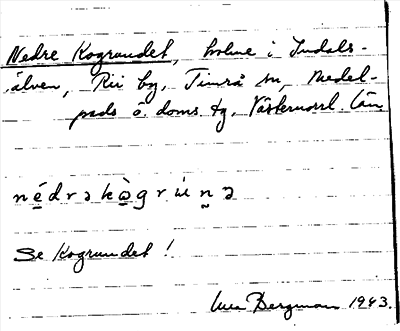 Nedre Kogrundet, holme i Indals-
älven, Rii by, Timrå sn, Medel-
pads ö. doms. tg, Västernorrl. län.
né̱drəkò̱grùṉə
Se Kogrundet!
Bergman 1943.